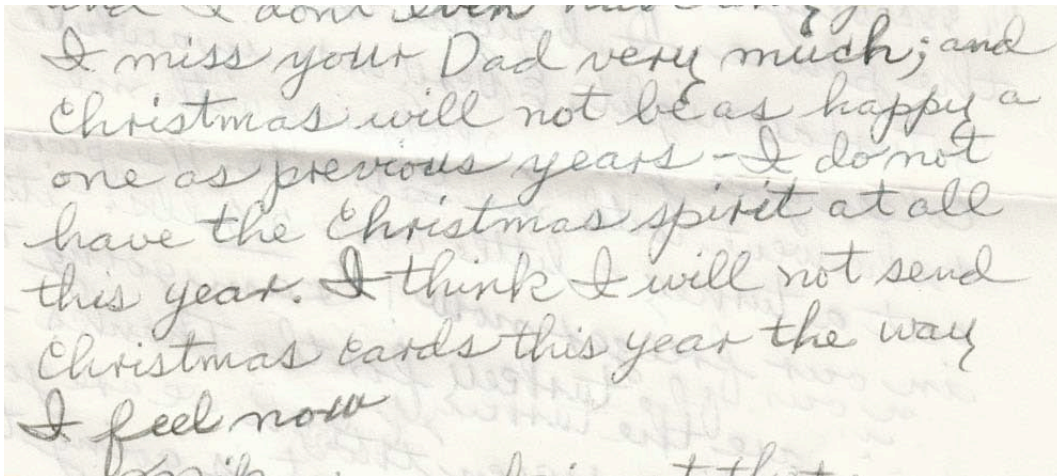 and I dont even
I miss your Dad very much; and
Christmas will not be as happy a
one as previous years - I do not
have the Christmas spirit at all
this year. I think I will not send
Christmas cards this year the way
I feel now